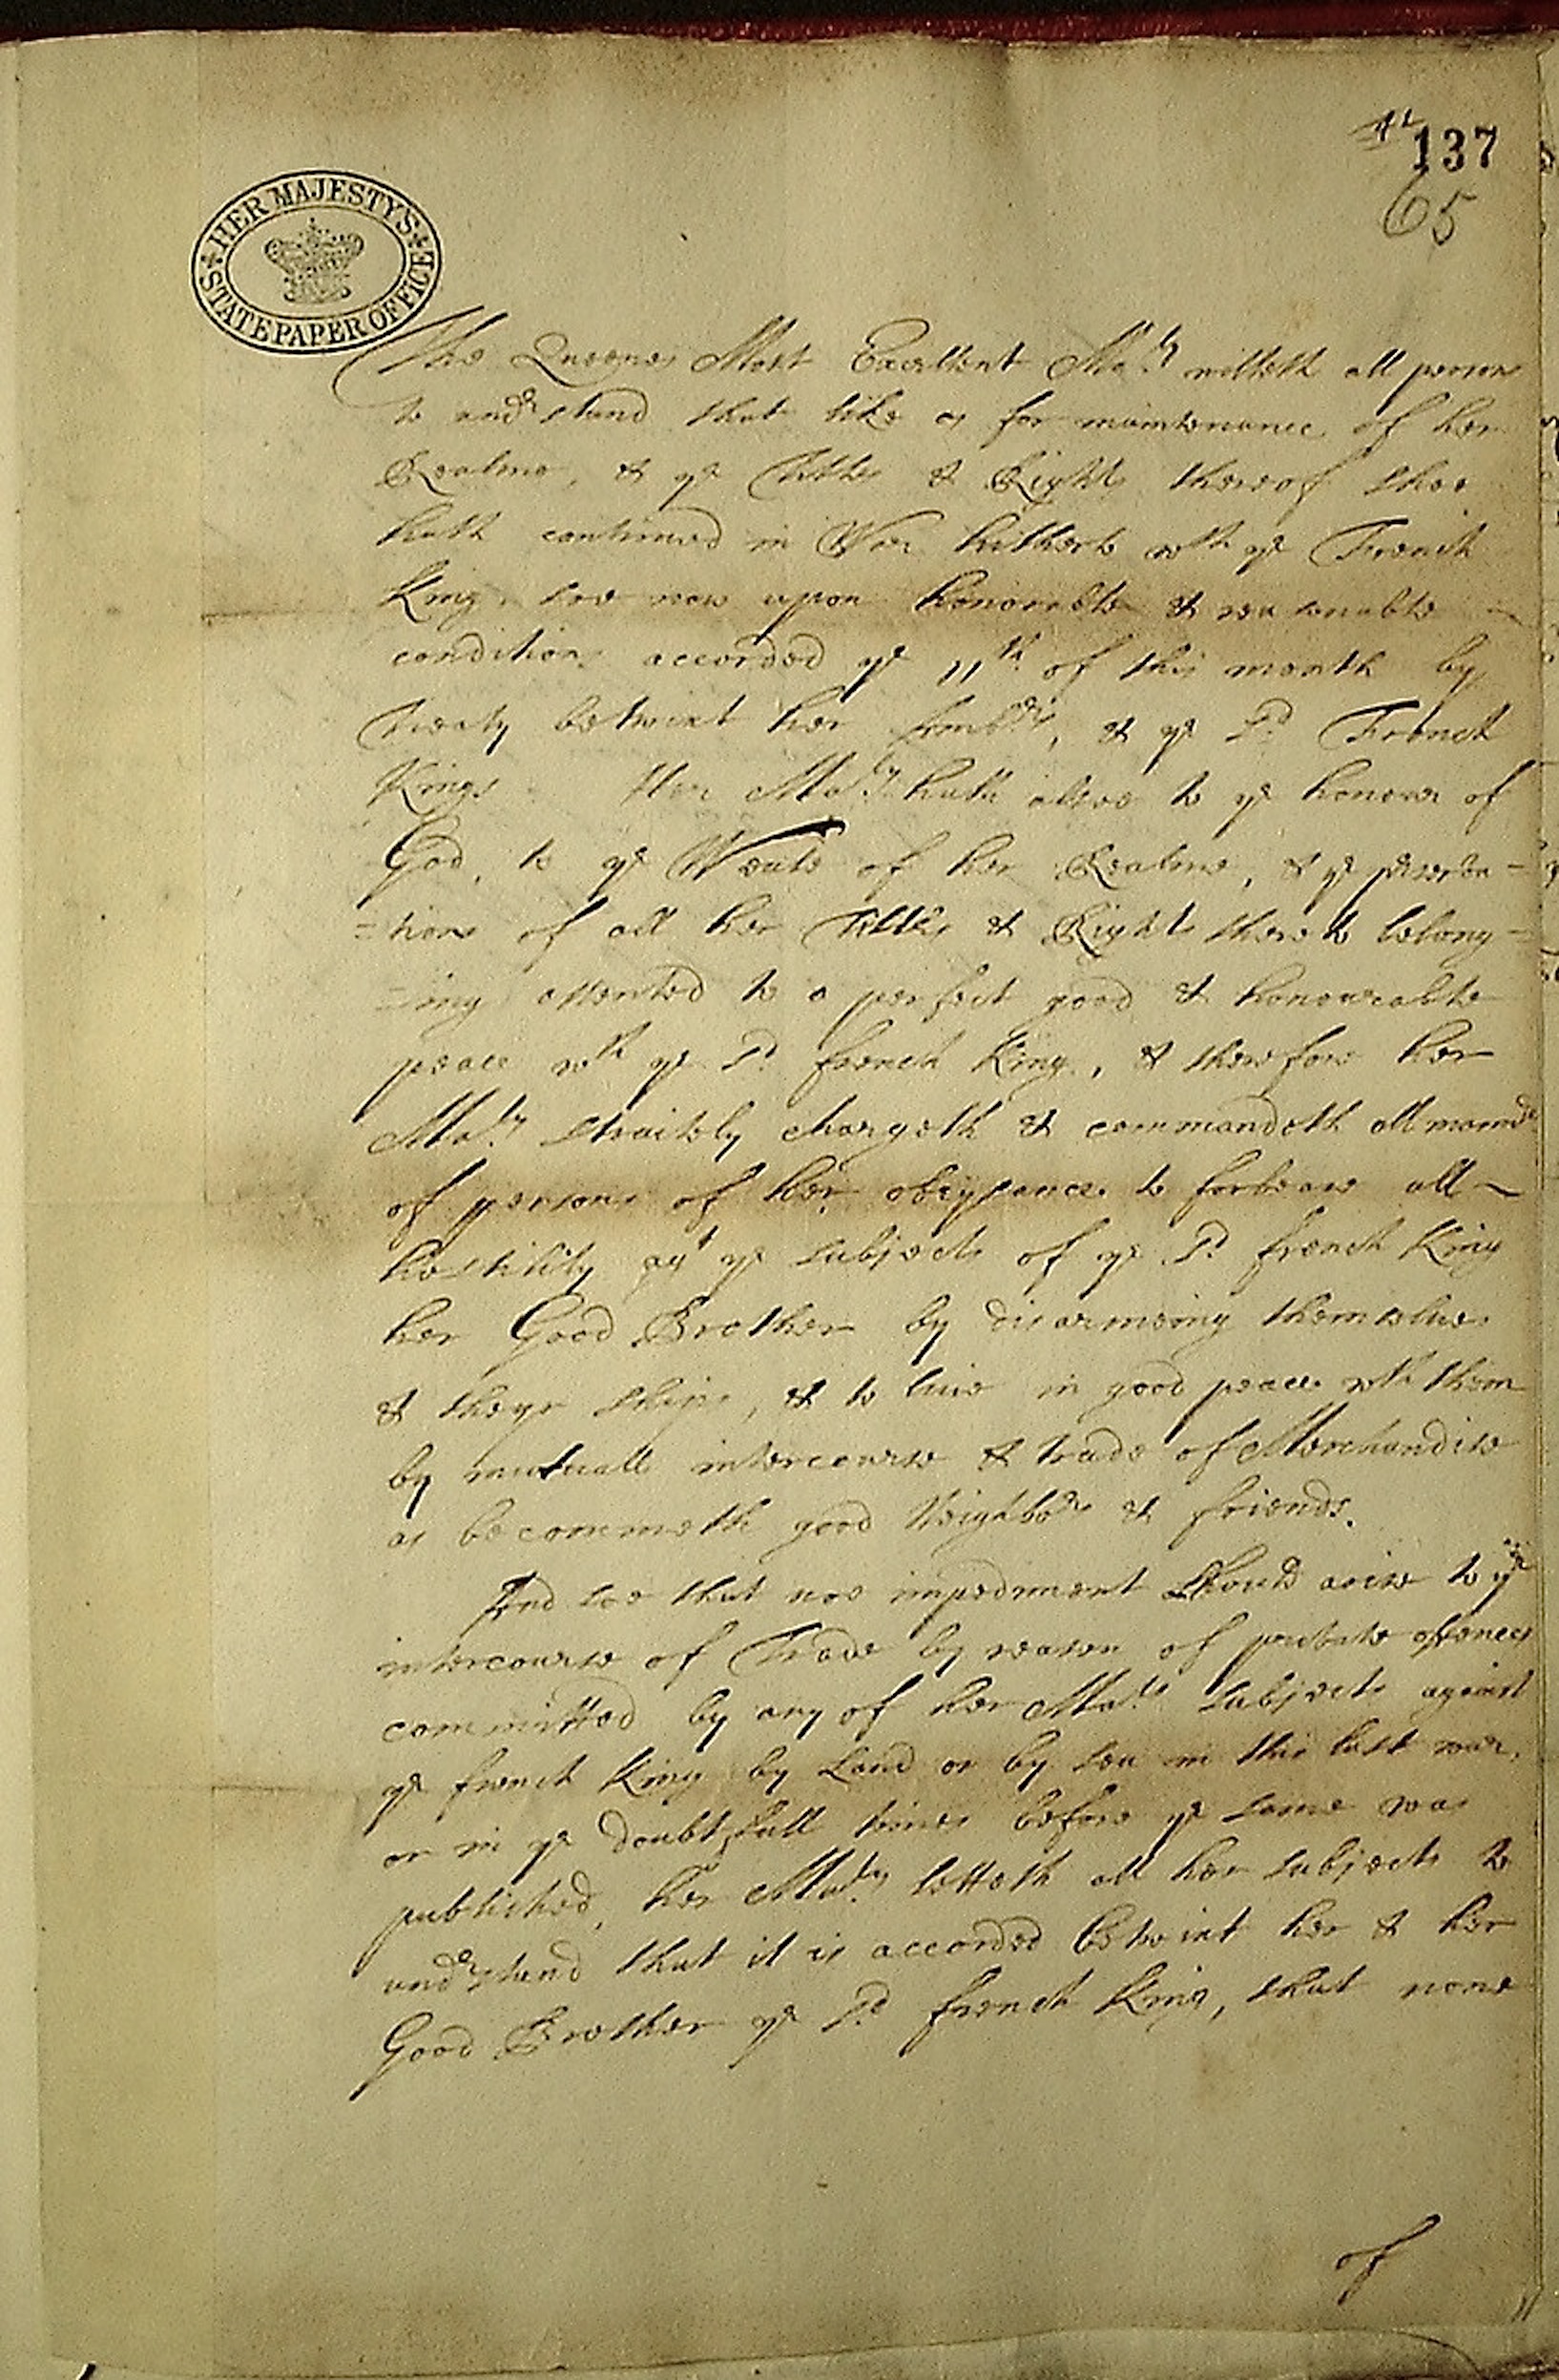 137
65
HER MAJESTY'S
STATE PAPER OFFICE
The Queenes Most Excellent Ma.ty willeth all persons
to und.rstand that like as for maintenance of her
Realme, & ye Titles & Rights thereof shee
hath continued in War hitherto wth ye French
King, soe now upon honorable & reasonable
conditions accorded ye 11th of this month by
Treaty betwixt her Embd.rs, & ye Sd French
Kings Her Ma.ty hath alsoe to ye honour of
God, to ye Weale of her Realme, & ye preserva=
=tions of all her Titles & Rights thereto belong=
=ing assented to a perfect good & honourable
peace wth ye Sd french King, & therefore her
Ma.ty straitely chargeth & commandeth all mann.r
of persons of her obeysance to forbeare all
hostility agt ye subjects of ye Sd french King
her Good Brother by disarmeing themselves
& theyr ships, & to live in good peace wth them
by mutuall intercourse & trade of Merchandise
as becommeth good Neighbo.rs & friends.
And soe that noe impediment should arise to ye
intercourse of Trade by reason of private offences
committed by any of her Ma.ts Subjects against
ye french King by Land or by Sea in this last war,
or in ye doubtfull times before ye same was
published, her Ma.ty letteth all her subjects to
und.rstand that it is accorded betwixt her & her
Good Brother ye Sd french King, that none
of